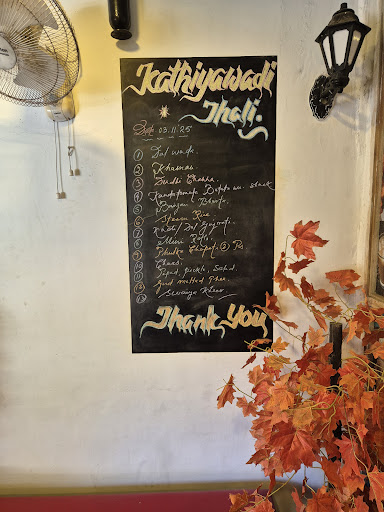 Kathiyawadi
Thali.
Date 03.11.25
1 Dal wada.
2 Khaman
3 Dudhi Chana
4 Kandatamata Batata nu shaak
5 Baigan Bharta
6 Steam Rice
7 Kadhi / Dal Gujrati
8 Rotla
9 Phulka Chapati Po
10 Chaas.
11 Papad, pickle, Salad.
12 Gud melted Ghee.
13 Sewaiya Kheer
Thank You